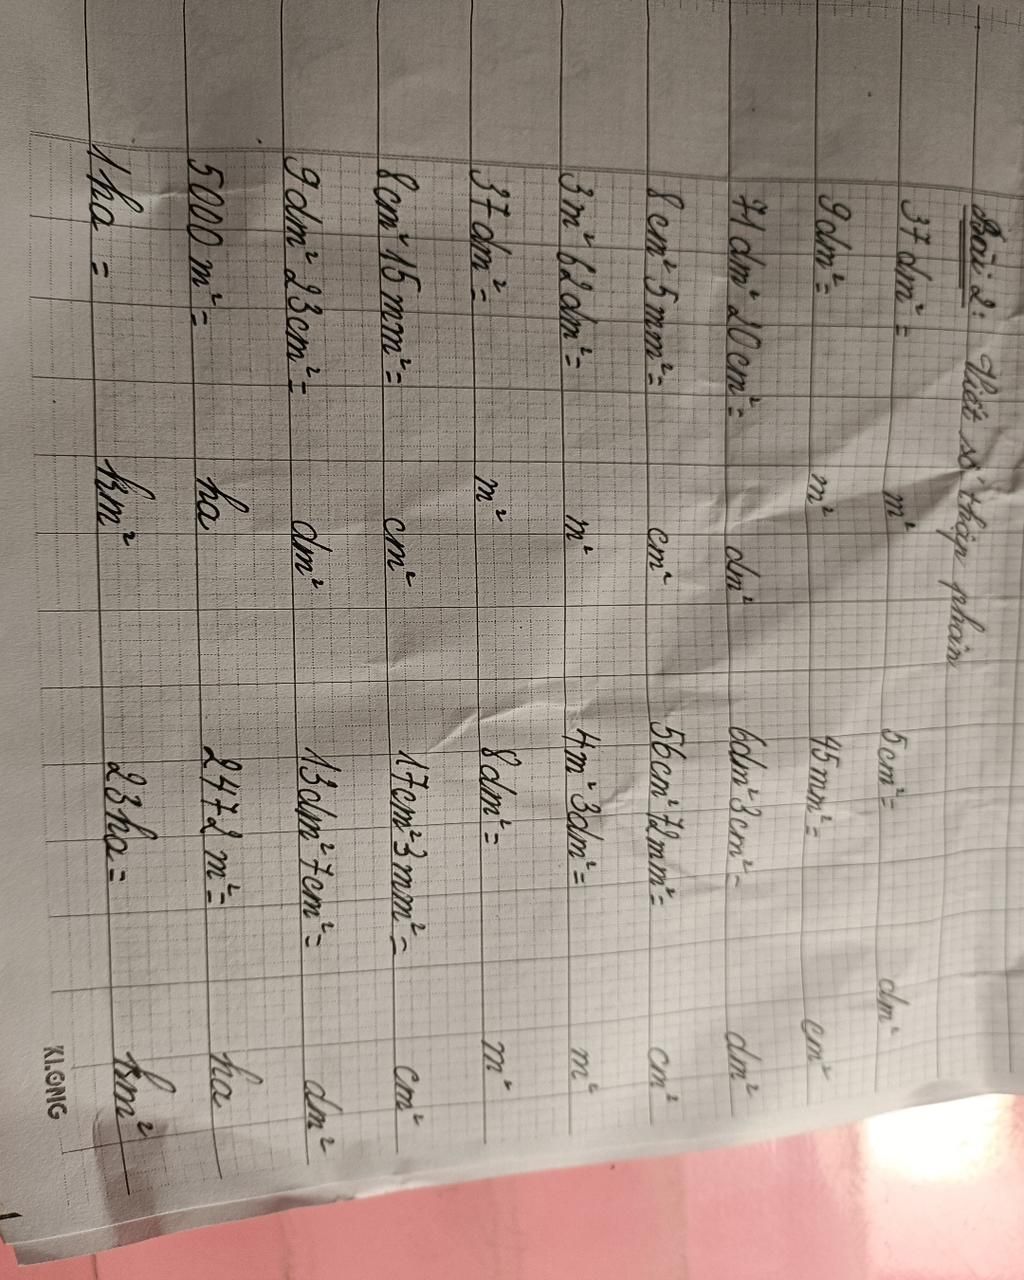 Bài 2: Viết số thập phân
37 dm² = m² 5 cm² = dm²
9 dm² = m² 45 mm² = cm²
71 dm² 20 cm² = dm² 6 dm² 3 cm² = dm²
8 cm² 5 mm² = cm² 56 cm² 72 mm² = cm²
3 m² 62 dm² = m² 4 m² 3 dm² = m²
37 dm² = m² 8 dm² = m²
8 cm² 15 mm² = cm² 17 cm² 3 mm² = cm²
9 dm² 23 cm² = dm² 13 dm² 7 cm² = dm²
5000 m² = ha 2472 m² = ha
1 ha = km² 23 ha = km²
KLONG